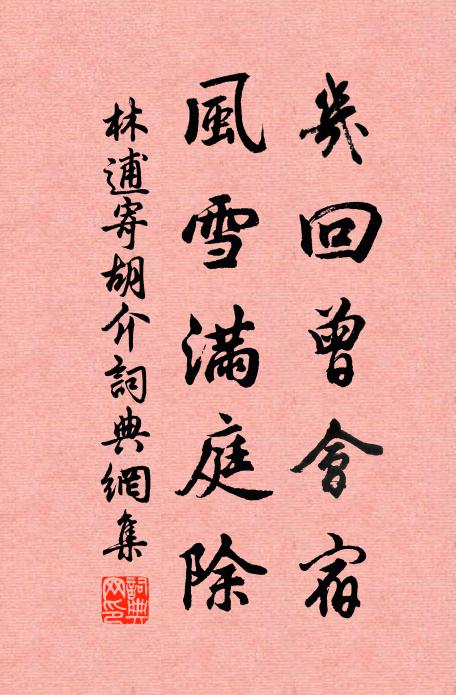 幾回曾會宿
風雪滿庭除
林逋寄胡介詞典網集
詞典網印